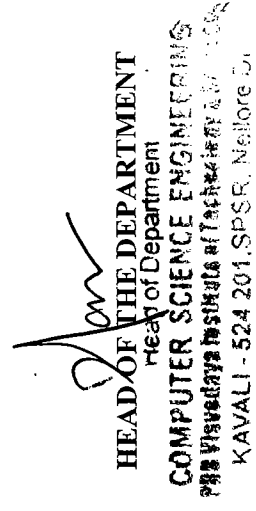 HEAD OF THE DEPARTMENT
Head of Department
COMPUTER SCIENCE ENGINEERING
PBR Visvodaya Institute of Technology &
KAVALI - 524 201. SPSR. Nellore Dt